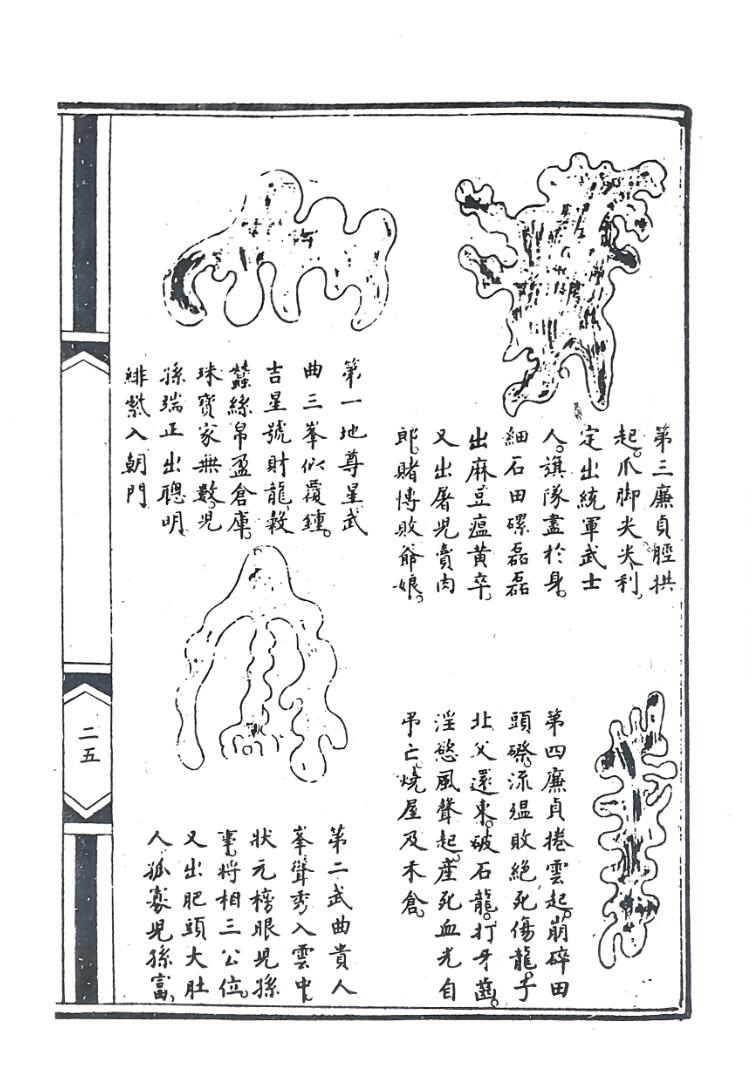 第三廉貞脛拱
起。爪脚尖尖利。
定出統軍武士
人。旗隊盡於身。
細石田磥磊磊
出麻豆瘟黃卒。
又出屠兒賣肉
郎。賭博敗爺娘。
第四廉貞捲雲起。崩碎田
頭磜。流瘟敗絕死傷龍。子
北父還東。破石龍。打牙齒。
淫慾風聲起。產死血光自
吊亡。燒屋及禾倉。
第一地尊星武
曲三峯似覆鍾。
吉星號財龍。穀
蠶絲帛盈倉庫。
珠寶家無數。兒
孫端正出聰明。
緋紫入朝門
第二武曲貴人
峯聳秀入雲中。
狀元榜眼兒孫
事。將相三公位。
又出肥頭大肚
人。孤寡兒孫富。
二五